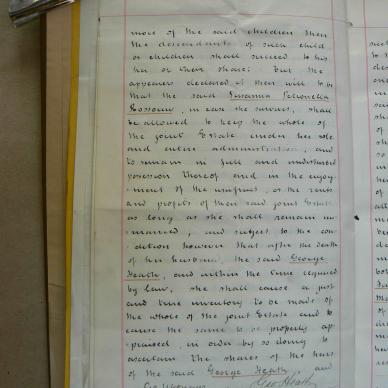 more of the said children then
the descendants of such child
or children shall succeed to his
her or their share; but the
appearers declared it their will to be
that the said Susanna Petronella
in case she survives, shall
be allowed to keep the whole of
the joint Estate under her sole
and entire administration, and
to remain in full and undisturbed
possession thereof and in the enjoy-
ment of the usufruct, or the rents
and profits of their said joint Estate
as long as she shall remain un-
married, and subject to the con-
dition however that after the death
of her husband, the said George
Heath, and within the time required
by law, she shall cause a just
and true inventory to be made of
the whole of the joint Estate and to
cause the same to be properly ap-
praised, in order by so doing to
ascertain the shares of the heirs
of the said George Heath, and
Geo Heath